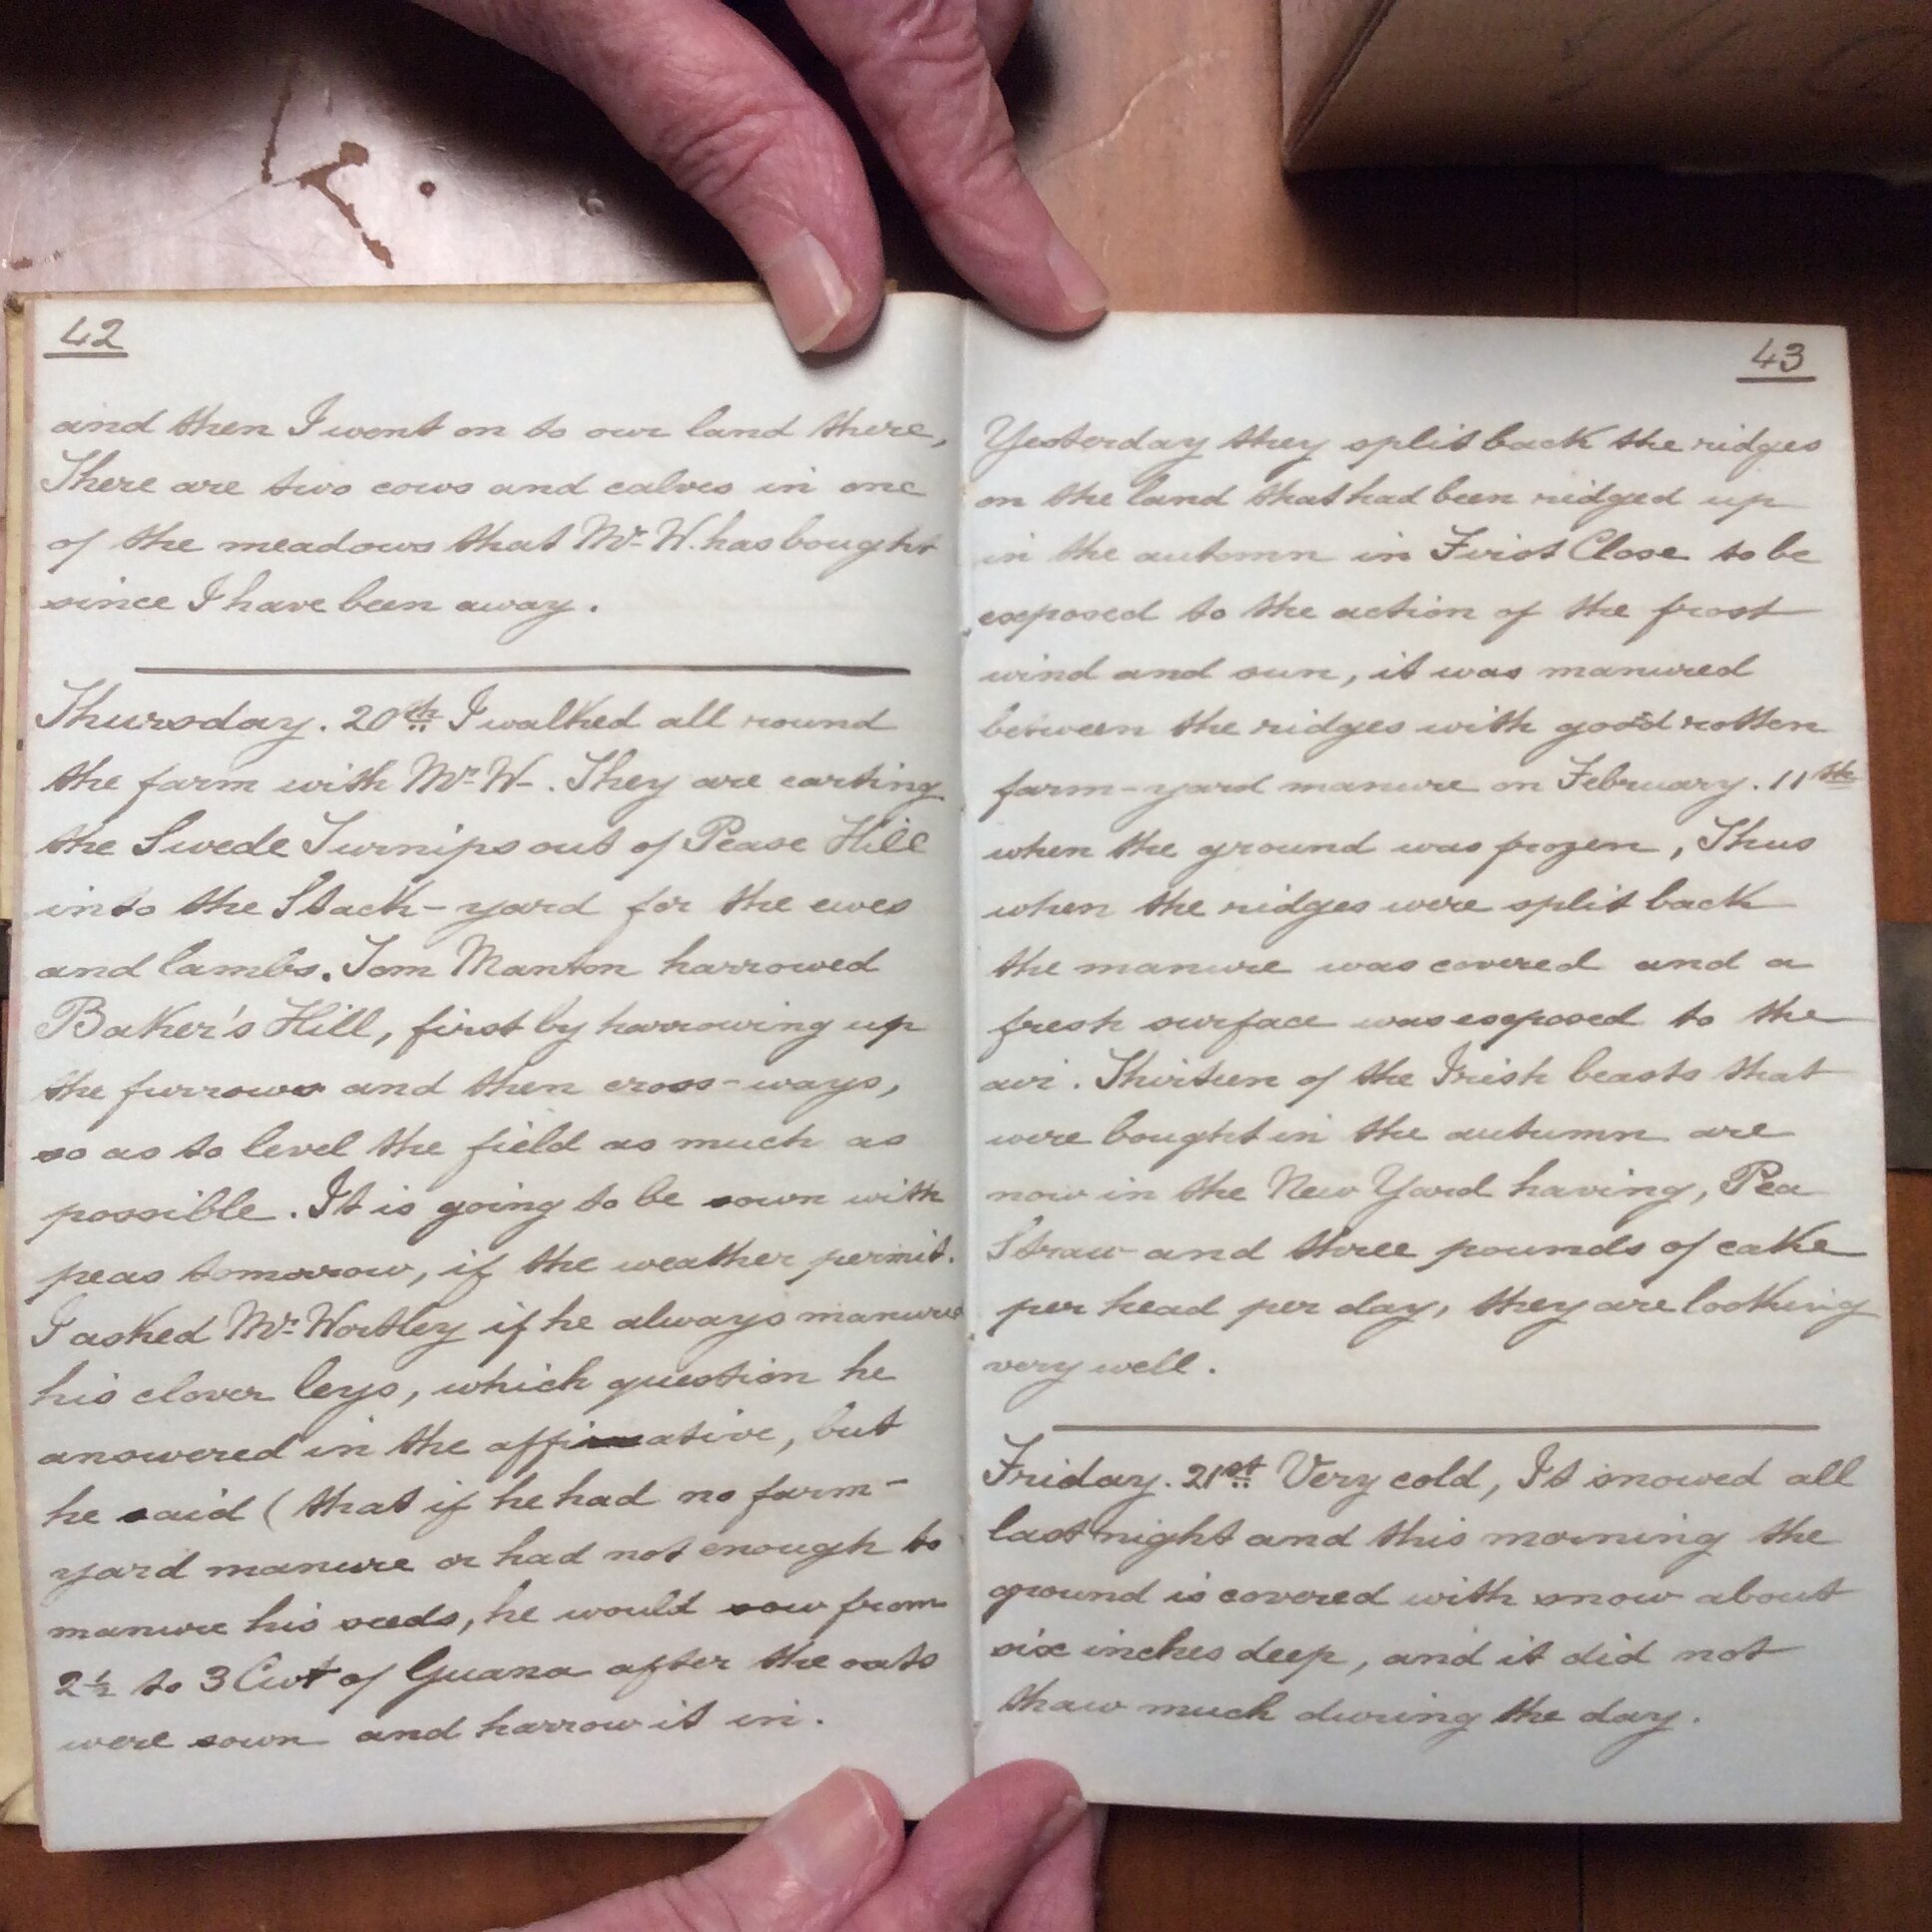 42
and then I went on to our land there,
There are two cows and calves in one
of the meadows that Mr. W. has bought
since I have been away.
Thursday. 20th I walked all round
the farm with Mr. W-. They are carting
the Swede Turnips out of Pease Hill
into the Stack-yard for the ewes
and lambs. Tom Manton harrowed
Baker's Hill, first by harrowing up
the furrows and then cross-ways,
so as to level the field as much as
possible. It is going to be sown with
peas tomorrow, if the weather permit.
I asked Mr. Wortley if he always manures
his clover leys, which question he
answered in the affirmative, but
he said (that if he had no farm-
yard manure or had not enough to
manure his seeds, he would sow from
2½ to 3 Cwt of Guana after the oats
were sown and harrow it in.
43
Yesterday they split back the ridges
on the land that had been ridged up
in the autumn in First Close to be
exposed to the action of the frost
wind and sun, it was manured
between the ridges with good rotten
farm-yard manure on February. 11th
when the ground was frozen, Thus
when the ridges were split back
the manure was covered and a
fresh surface was exposed to the
air. Thirteen of the Irish beasts that
were bought in the autumn are
now in the New Yard having, Pea
Straw and three pounds of cake
per head per day, they are looking
very well.
Friday. 21st Very cold, It snowed all
last night and this morning the
ground is covered with snow about
six inches deep, and it did not
thaw much during the day.